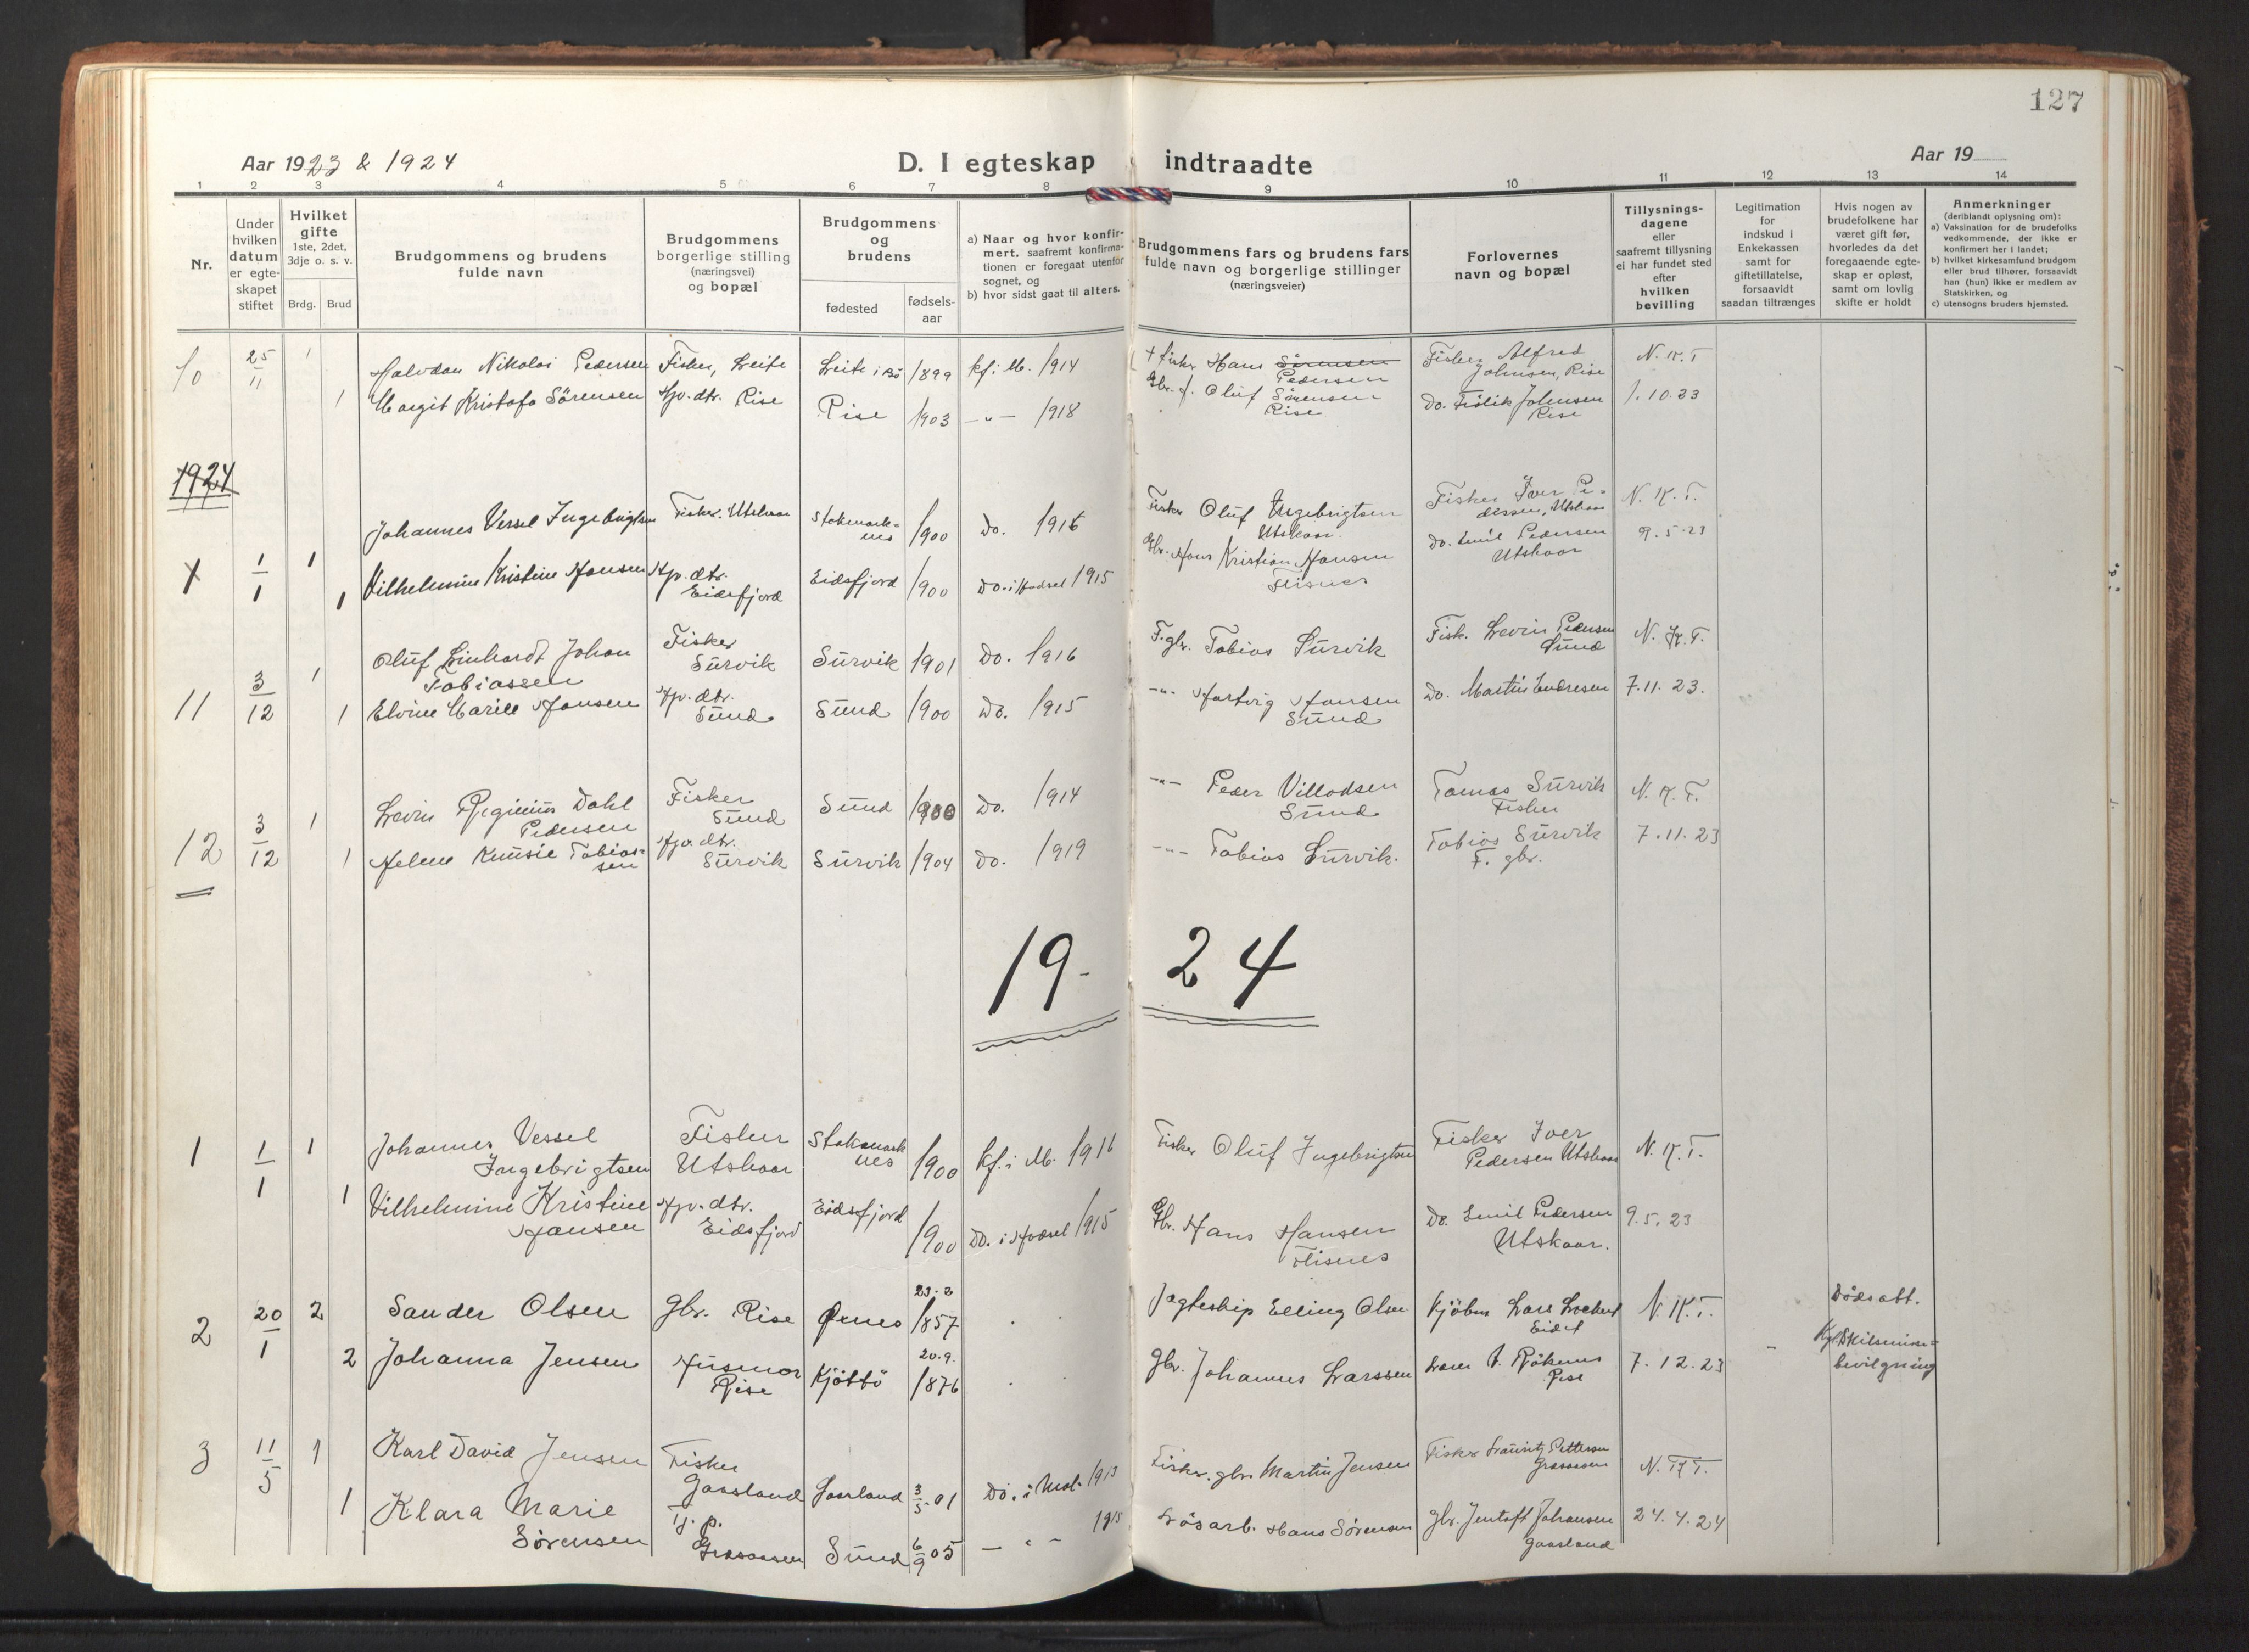 127
Aar 1923 & 1924
D. I egteskap indtraadte
Aar 19
1 2 3 4 5 6 7 8 9 10 11 12 13 14
Nr.
Under hvilken datum er egte-skapet stiftet
Hvilket gifte
1ste, 2det, 3dje o. s. v.
Brdg. Brud
Brudgommens og brudens fulde navn
Brudgommens borgerlige stilling (næringsvei) og bopæl
Brudgommens og brudens
fødested
fødsels-aar
a) Naar og hvor konfir-mert, saafremt konfirma-tionen er foregaat utenfor sognet, og
b) hvor sidst gaat til alters.
Brudgommens fars og brudens fars fulde navn og borgerlige stillinger (næringsveier)
Forlovernes navn og bopæl
Tillysnings-dagene eller saafremt tillysning ei har fundet sted efter hvilken bevilling
Legitimation for indskud i Enkekassen samt for giftetillatelse, forsaavidt saadan tiltrænges
Hvis nogen av brudefolkene har været gift før, hvorledes da det foregaaende egte-skap er opløst, samt om lovlig skifte er holdt
Anmerkninger
(deriblandt oplysning om):
a) Vaksination for de brudefolks vedkommende, der ikke er konfirmert her i landet;
b) hvilket kirkesamfund brudgom eller brud tilhører, forsaavidt han (hun) ikke er medlem av Statskirken, og
c) utensogns bruders hjemsted.
10 25/11 1 Halvdan Nikolai Pedersen Fisker, Leite Leite i Bö 1899 kf. i M. 1914 + fisker Hans Sörensen Pedersen Fisker Alfred Johnsen, Rise N. K. T
1 Margit Kristofa Sörensen Hp. dtr. Rise Rise 1903 -"- 1918 Gbr. f. Oluf Sörensen Rise Do. Johnsen Rise 1.10.23
1924
Johannes Vessel Ingebrigtsen Fisker. Utskaar Stokmark-nes 1900 Do. 1916 Fisker Oluf Ingebrigtsen Utskaar. Fisker Iver Pe-dersen, Utskaar N. K. T.
1 1/1 1 1 Vilhelmine Kristine Hansen Hp. dtr. Eidsfjord Eidsfjord 1900 Do. i Hadsel 1915 Gbr. Hans Kristian Hansen Flisnes Do. Emil Pedersen Utskaar 9.5.23
11 3/12 1 Oluf Linhardt Johan Tobiassen Fisker Survik Survik 1901 Do. 1916 F. gbr. Tobias Survik Fisk. Levin Pedersen Sund N. K. T.
1 Elvine Marie Hansen Hp. dtr. Sund Sund 1900 Do. 1915 -"- Hartvig Hansen Sund Do. Martin Endresen 7.11.23.
12 3/12 1 Levin Reginius Dahl Pedersen Fisker Sund Sund 1900 Do. 1914 -"- Peder Villadsen Sund Tomas Survik Fisker N. K. T.
1 Helene Tobias-sen Hp. dtr. Survik Survik 1904 Do. 1919 -"- Tobias Survik. Tobias Survik F. gbr. 7.11.23
19-24
1 1/1 1 Johannes Vessel Ingebrigtsen Fisker Utskaar Stokmark nes 1900 kf. i M. 1916 Fisker Oluf Ingebrigtsen Fisker Iver Pedersen Utskaar N. K. T.
1 Vilhelmine Kristine Hansen Hp. dtr. Eidsfjord Eidsfjord 1900 Do. i Hadsel 1915 Gbr. Hans Hansen Flisnes Do. Emil Pedersen Utskaar. 9.5.23
2 20/1 2 Sander Olsen Gbr. Rise 1857 Elling Olsen Kjöbm Lars Lockert Eidet N. K. T. Dödsatt.
2 Johanna Jensen Husmor Rise Kjöttö 20.9. 1876 Gbr. Johannes Larssen Rise 7.12.23 Kgl. Skilsmisse-bevilgning
3 11/5 1 Karl David Jensen Fisker Gaasland Gaasland 3/5-01 Do. i Mal. 1913 Fisker. gbr. Martin Jensen Fisker Lauritz Pettersen N. K. T.
1 Klara Marie Sörensen Sund 6/9 05 -"- 1915 Lösarb. Hans Sörensen Gbr. Jentoft Johansen Gaasland 24.4.24